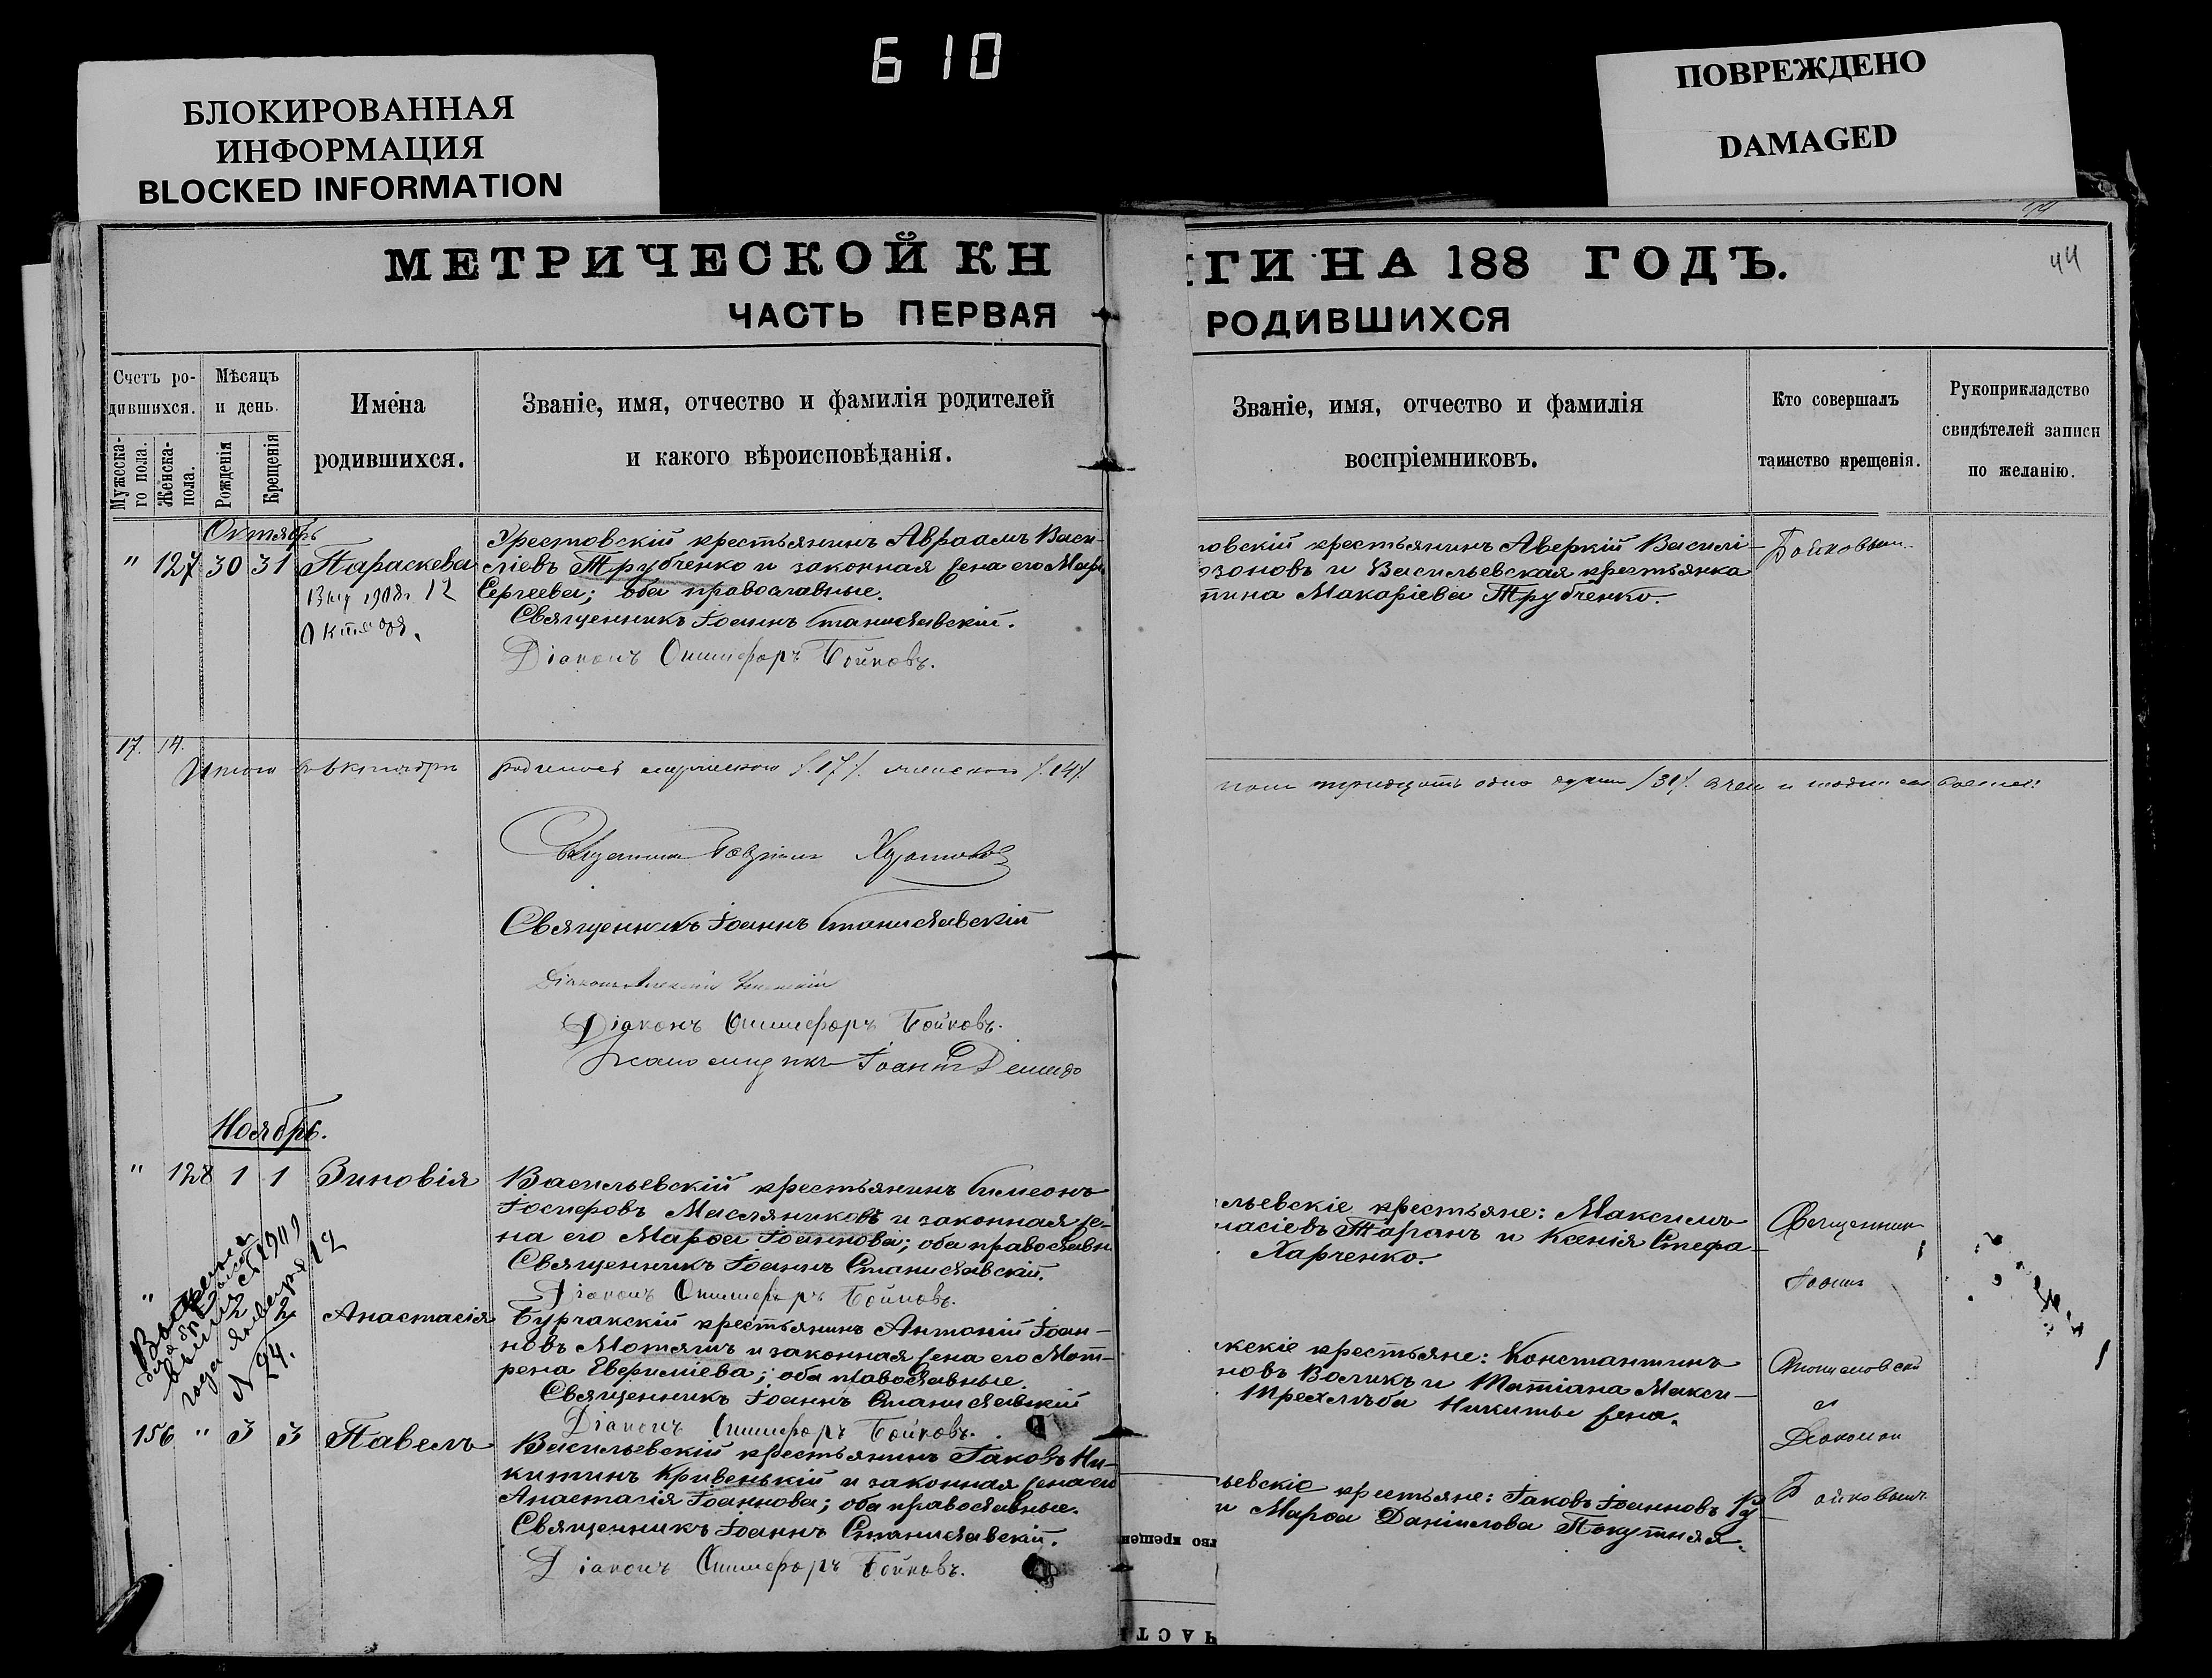 6 10
БЛОКИРОВАННАЯ
ИНФОРМАЦИЯ
BLOCKED INFORMATION
ПОВРЕЖДЕНО
DAMAGED
44
МЕТРИЧЕСКОЙ КН
ЧАСТЬ ПЕРВАЯ
ГИ НА 188 ГОДЪ.
РОДИВШИХСЯ
Счетъ ро-
дившихся.
Мужеска-
го пола.
Женска-
пола.
Мѣсяцъ
и день.
Рожденія
Крещенія
Имена
родившихся.
Званіе, имя, отчество и фамилія родителей
и какого вѣроисповѣданія.
Званіе, имя, отчество и фамилія
воспріемниковъ.
Кто совершалъ
таинство крещенія.
Рукоприкладство
свидѣтелей записи
по желанію.
Октябрь
" 127 30 31 Параскева
12
крестьянинъ Авраамъ Васи-
ліевъ Трубченко и законная жена его
Сергеева; оба православные.
Священникъ Іоаннъ Станиславскій.
Діаконъ Онисифоръ Бойковъ.
овскій крестьянинъ Аверкій Василі-
озоновъ и Васильевская крестьянка
тина Макаріева Трубченко.
Бойковым
17. 14.
Итого въ октябрѣ родилось мужескаго /17/. женскаго /14/.
пола тридцать одна душа /31/.
Священникъ
Священникъ Іоаннъ Станиславскій
Діаконъ
Діаконъ Онисифоръ Бойковъ.
Псаломщикъ Іоаннъ
Ноябрь.
" 128 1 1 Зиновія
Васильевскій крестьянинъ Симеонъ
Іосифовъ Масляниковъ и законная же-
на его Марѳа Іоаннова; оба православн
Священникъ Іоаннъ Станиславскій.
Діаконъ Онисифоръ Бойковъ.
льевскіе крестьяне: Максимъ
насіевъ Таранъ и Ксенія Стефа-
Харченко.
Священник
Іоанн
" 2 2 Анастасія
года января 12
N 24.
Бурчакскій крестьянинъ Антоній Іоан-
новъ и законная жена его Мот-
рена Евфиміева; оба православные.
Священникъ Іоаннъ Станиславскій
Діаконъ Онисифоръ Бойковъ.
кскіе крестьяне: Константинъ
новъ Воликъ и Татіана Макси-
Трехлѣба Никиты жена.
Станиславскій
и
Діаконом
156 " 3 3 Павелъ
Васильевскій крестьянинъ Іаковъ Ни-
китинъ Кривенькій и законная жена его
Анастасія Іоаннова; оба православные.
Священникъ Іоаннъ Станиславскій.
Діаконъ Онисифоръ Бойковъ.
ьевскіе крестьяне: Іаковъ Іоанновъ
и Марѳа Даніилова Покутняя.
Бойковымъ
тво крещен
ЧАСТ